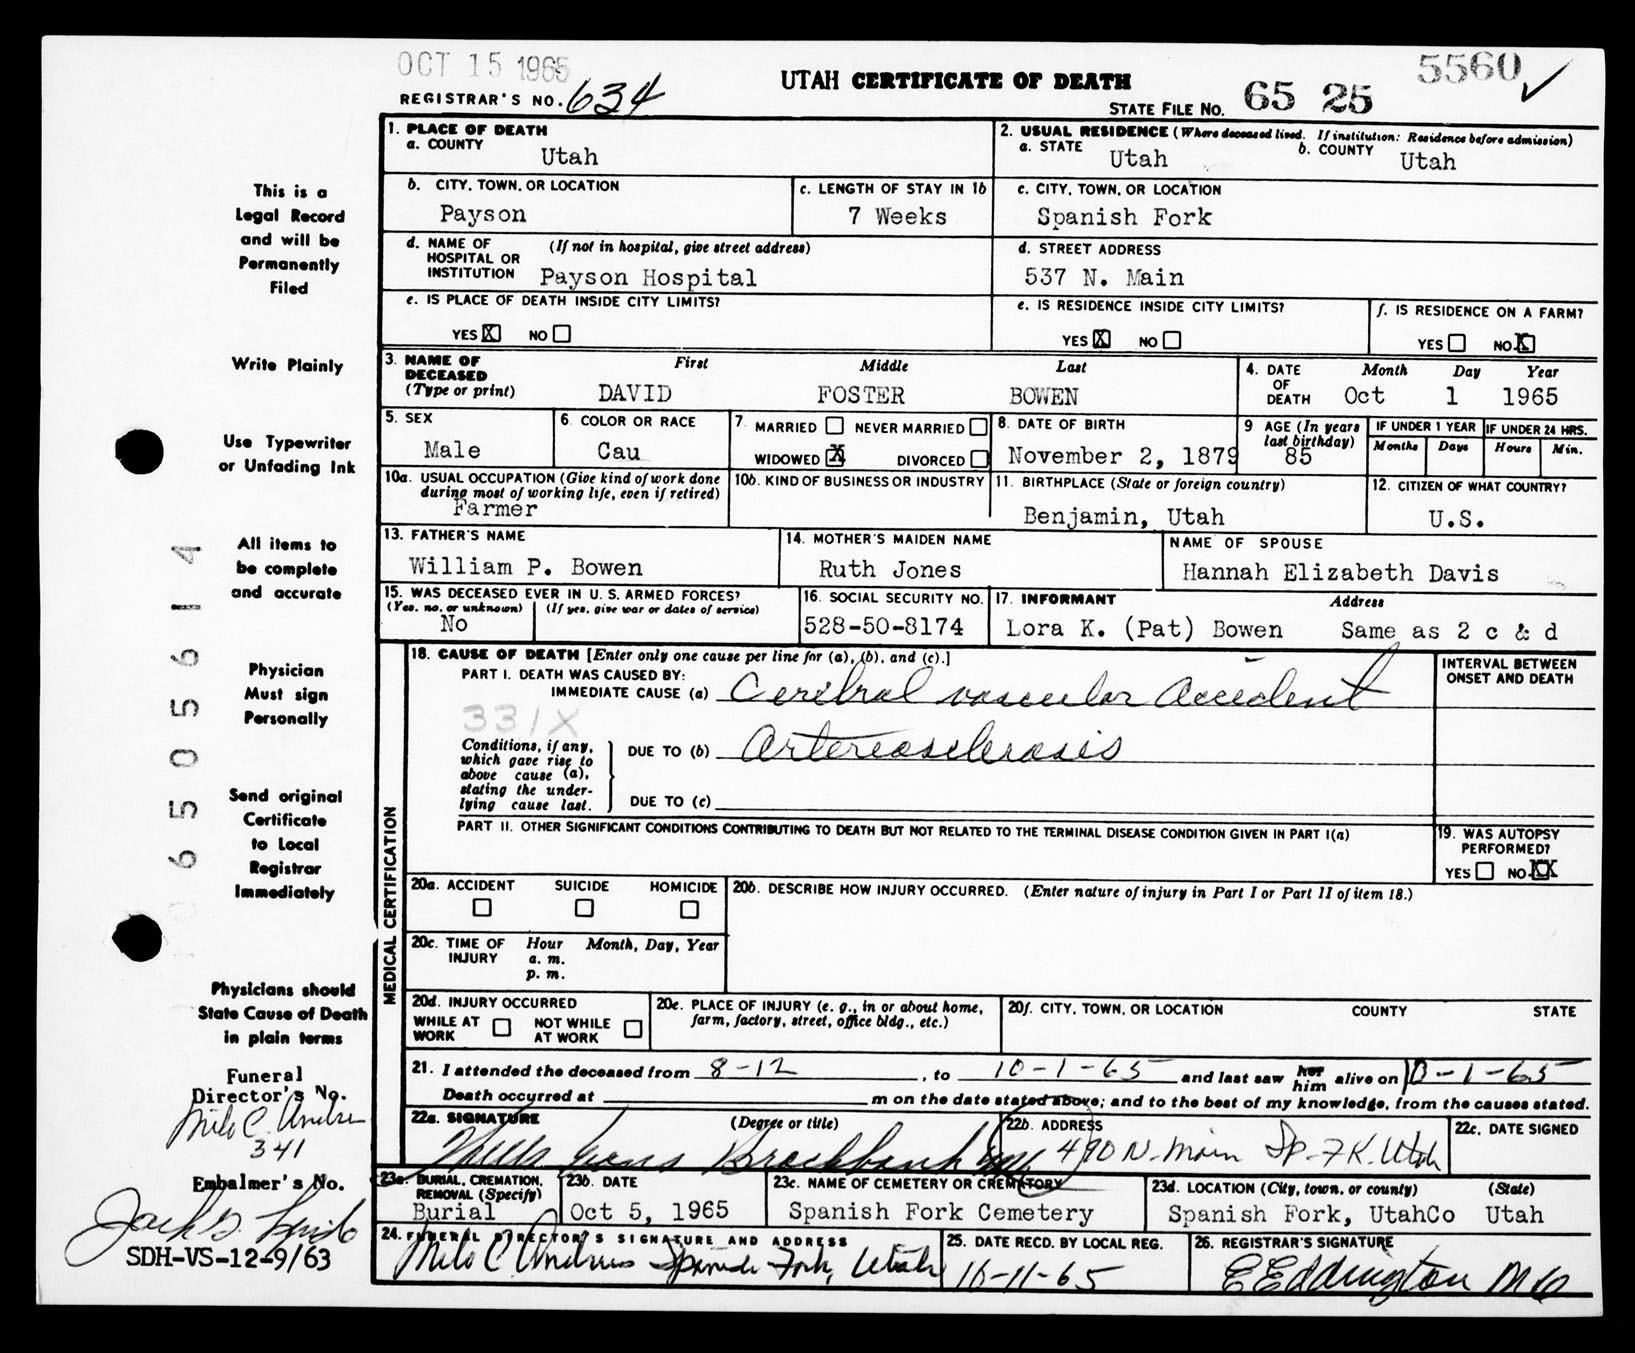 OCT 15 1965
5560 ✓
UTAH CERTIFICATE OF DEATH
REGISTRAR'S NO. 634
STATE FILE NO. 65 25
This is a
Legal Record
and will be
Permanently
Filed
Write Plainly
Use Typewriter
or Unfading Ink
All items to
be complete
and accurate
Physician
Must sign
Personally
Send original
Certificate
to Local
Registrar
Immediately
Physicians should
State Cause of Death
in plain terms
Funeral
Director's No.
Milo C. Andrus
341
Embalmer's No.
SDH-VS-12-9/63
65056 14
1. PLACE OF DEATH
a. COUNTY Utah
2. USUAL RESIDENCE (Where deceased lived. If institution: Residence before admission)
a. STATE Utah b. COUNTY Utah
b. CITY, TOWN, OR LOCATION Payson
c. LENGTH OF STAY IN 1b 7 Weeks
c. CITY, TOWN, OR LOCATION Spanish Fork
d. NAME OF HOSPITAL OR INSTITUTION (If not in hospital, give street address) Payson Hospital
d. STREET ADDRESS 537 N. Main
e. IS PLACE OF DEATH INSIDE CITY LIMITS?
YES X NO
e. IS RESIDENCE INSIDE CITY LIMITS?
YES X NO
f. IS RESIDENCE ON A FARM?
YES NO X
3. NAME OF DECEASED (Type or print) First Middle Last
DAVID FOSTER BOWEN
4. DATE OF DEATH Month Day Year
Oct 1 1965
5. SEX Male
6. COLOR OR RACE Cau
7. MARRIED NEVER MARRIED
WIDOWED X DIVORCED
8. DATE OF BIRTH November 2, 1879
9 AGE (In years last birthday) 85
IF UNDER 1 YEAR Months Days
IF UNDER 24 HRS. Hours Min.
10a. USUAL OCCUPATION (Give kind of work done during most of working life, even if retired)
Farmer
10b. KIND OF BUSINESS OR INDUSTRY
11. BIRTHPLACE (State or foreign country) Benjamin, Utah
12. CITIZEN OF WHAT COUNTRY? U.S.
13. FATHER'S NAME William P. Bowen
14. MOTHER'S MAIDEN NAME Ruth Jones
NAME OF SPOUSE Hannah Elizabeth Davis
15. WAS DECEASED EVER IN U.S. ARMED FORCES?
(Yes, no, or unknown) (If yes, give war or dates of service)
No
16. SOCIAL SECURITY NO. 528-50-8174
17. INFORMANT Address
Lora K. (Pat) Bowen Same as 2 c & d
MEDICAL CERTIFICATION
18. CAUSE OF DEATH [Enter only one cause per line for (a), (b), and (c).]
INTERVAL BETWEEN ONSET AND DEATH
PART I. DEATH WAS CAUSED BY:
IMMEDIATE CAUSE (a) Cerebral vascular accident
331X
Conditions, if any, which gave rise to above cause (a), stating the underlying cause last.
DUE TO (b) Arteriosclerosis
DUE TO (c)
PART II. OTHER SIGNIFICANT CONDITIONS CONTRIBUTING TO DEATH BUT NOT RELATED TO THE TERMINAL DISEASE CONDITION GIVEN IN PART I(a)
19. WAS AUTOPSY PERFORMED?
YES NO XX
20a. ACCIDENT SUICIDE HOMICIDE
20b. DESCRIBE HOW INJURY OCCURRED. (Enter nature of injury in Part I or Part II of item 18.)
20c. TIME OF INJURY Hour Month, Day, Year
a. m.
p. m.
20d. INJURY OCCURRED
WHILE AT WORK NOT WHILE AT WORK
20e. PLACE OF INJURY (e. g., in or about home, farm, factory, street, office bldg., etc.)
20f. CITY, TOWN, OR LOCATION COUNTY STATE
21. I attended the deceased from 8-12, to 10-1-65 and last saw her him alive on 10-1-65
Death occurred at m on the date stated above; and to the best of my knowledge, from the causes stated.
22a. SIGNATURE (Degree or title)
Brockbank
22b. ADDRESS 490 N. Main Sp. FK. Utah
22c. DATE SIGNED
23a. BURIAL, CREMATION, REMOVAL (Specify) Burial
23b. DATE Oct 5, 1965
23c. NAME OF CEMETERY OR CREMATORY Spanish Fork Cemetery
23d. LOCATION (City, town, or county) (State)
Spanish Fork, UtahCo Utah
24. FUNERAL DIRECTOR'S SIGNATURE AND ADDRESS
Milo C Andrus Spanish Fork, Utah
25. DATE RECD. BY LOCAL REG. 10-11-65
26. REGISTRAR'S SIGNATURE
E Eddington MD